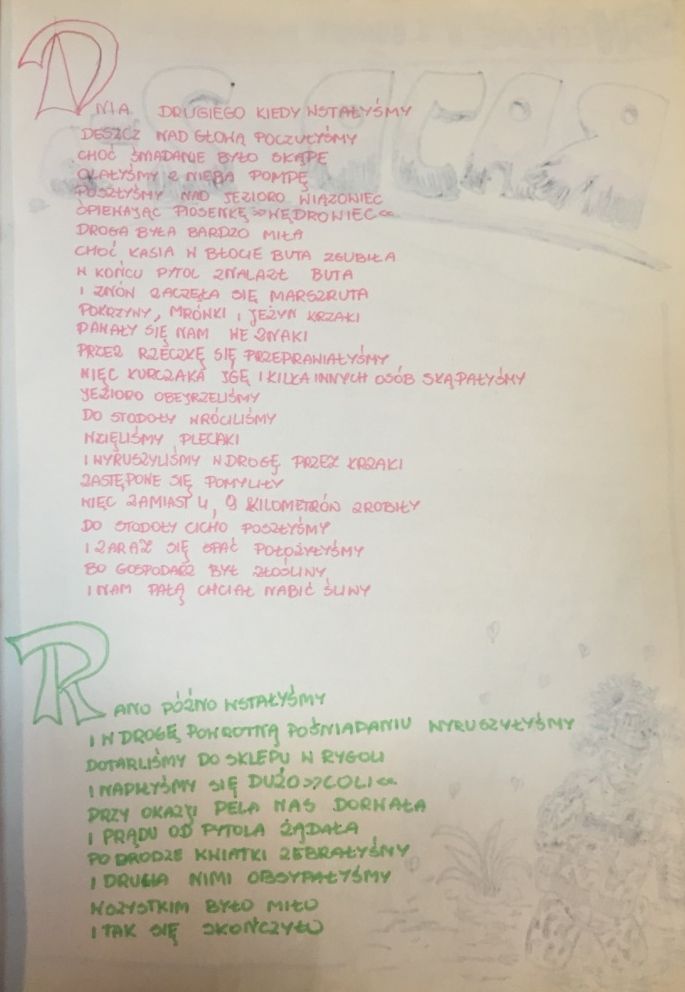 DNIA DRUGIEGO KIEDY WSTAŁYŚMY
DESZCZ NAD GŁOWĄ POCZUŁYŚMY
CHOĆ ŚNIADANIE BYŁO SKĄPE
OLAŁYŚMY Z NIEBA POMPĘ
POSZŁYŚMY NAD JEZIORO WIĄZOWIEC
OPIEWAJĄC PIOSENKĘ »WĘDROWIEC«
DROGA BYŁA BARDZO MIŁA
CHOĆ KASIA W BŁOCIE BUTA ZGUBIŁA
W KOŃCU PYTOL ZNALAZŁ BUTA
I ZNÓW ZACZĘŁA SIĘ MARSZRUTA
POKRZYWY, MRÓWKI I JEŻYN KRZAKI
DAWAŁY SIĘ NAM WE ZNAKI
PRZEZ RZECZKĘ SIĘ PRZEPRAWIAŁYŚMY
WIĘC KURCZAKA JGĘ I KILKA INNYCH OSÓB SKĄPAŁYŚMY
JEZIORO OBEJRZELIŚMY
DO STODOŁY WRÓCILIŚMY
WZIĘLIŚMY PLECAKI
I WYRUSZYLIŚMY W DROGĘ PRZEZ KRZAKI
ZASTĘPOWE SIĘ POMYLIŁY
WIĘC ZAMIAST 4, 9 KILOMETRÓW ZROBIŁY
DO STODOŁY CICHO POSZŁYŚMY
I ZARAZ SIĘ SPAĆ POŁOŻYŁYŚMY
BO GOSPODARZ BYŁ ZŁOŚLIWY
I NAM PAŁĄ CHCIAŁ NABIĆ ŚLIWY
RANO PÓŹNO WSTAŁYŚMY
I W DROGĘ POWROTNĄ POŚNIADANIU WYRUSZYŁYŚMY
DOTARLIŚMY DO SKLEPU W RYGOLI
I NAPIŁYŚMY SIĘ DUŻO »COLI«
PRZY OKAZJI PELA NAS DORWAŁA
I PRĄDU OD PYTOLA ŻĄDAŁA
PO DRODZE KWIATKI ZEBRAŁYŚMY
I DRUHA NIMI OBSYPAŁYŚMY
WSZYSTKIM BYŁO MIŁO
I TAK SIĘ SKOŃCZYŁO